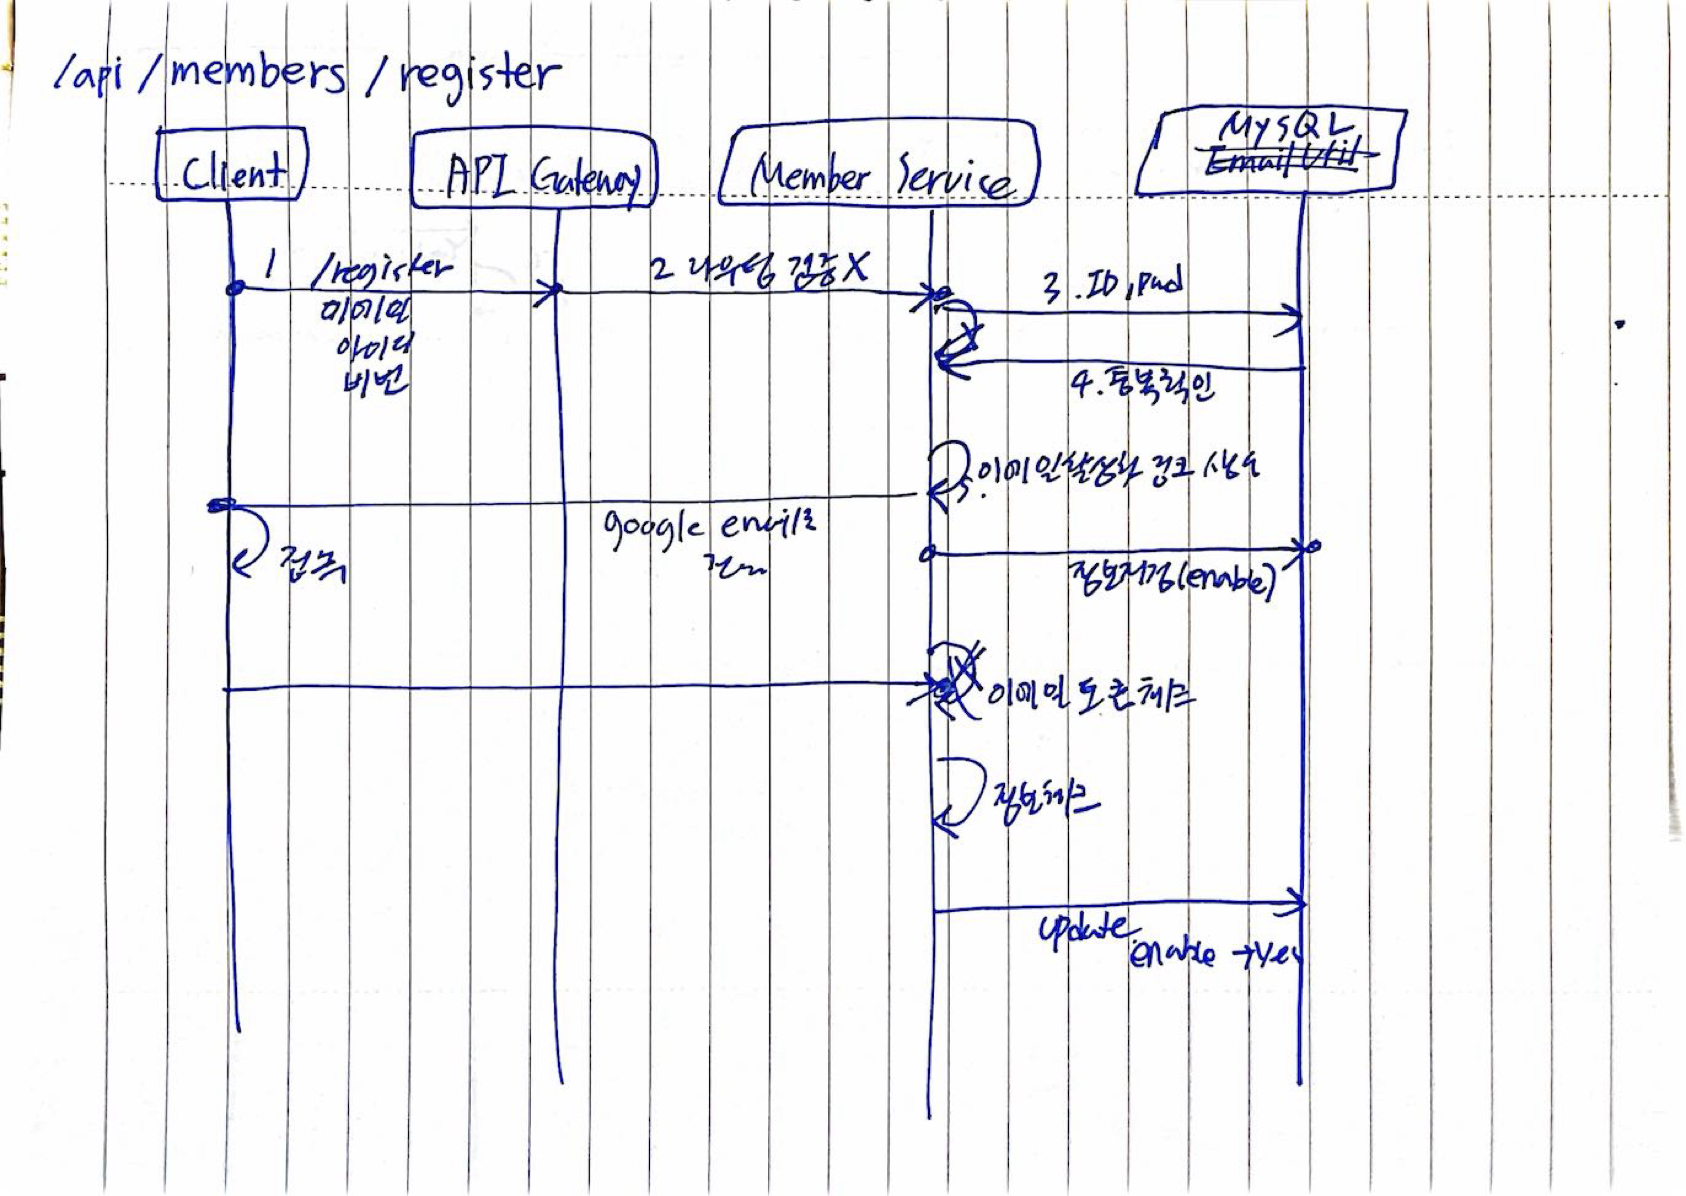 /api/members/register
Client
API Gateway
Member Service
MySQL
Email Util
1 /register
이메일
아이디
비번
2 라우팅 검증X
3. ID, pwd
4. 중복확인
5. 이메일활성화 링크 생성
google email로
접속
정보저장(enable)
이메일 토큰체크
정보체크
update
enable → Yes